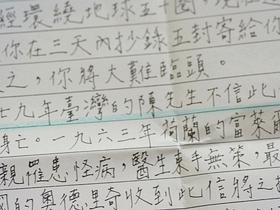 經環繞地球五十圈,
你在三天內抄錄五封寄給你
之,你將大難臨頭。
七九年臺灣的陳先生不信此
身亡。一九六三年荷蘭的富萊
親罹患怪病,醫生束手無策,最
的奧德里奇收到此信將之